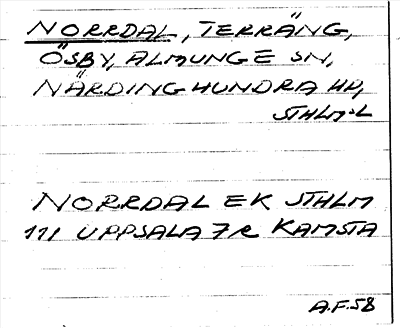 NORRDAL, TERRÄNG,
ÖSBY, ALMUNGE SN,
NÄRDINGHUNDRA HD,
STHLMS L
NORRDAL EK STHLM
111 UPPSALA 7 R KAMSTA
A.F. 58